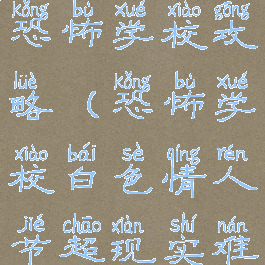 kǒng bù xué xiào gōng
恐怖学校攻
lüè kǒng bù xué
略（恐怖学
xiào bái sè qíng rén
校白色情人
jié chāo xiàn shí nán
节超现实难